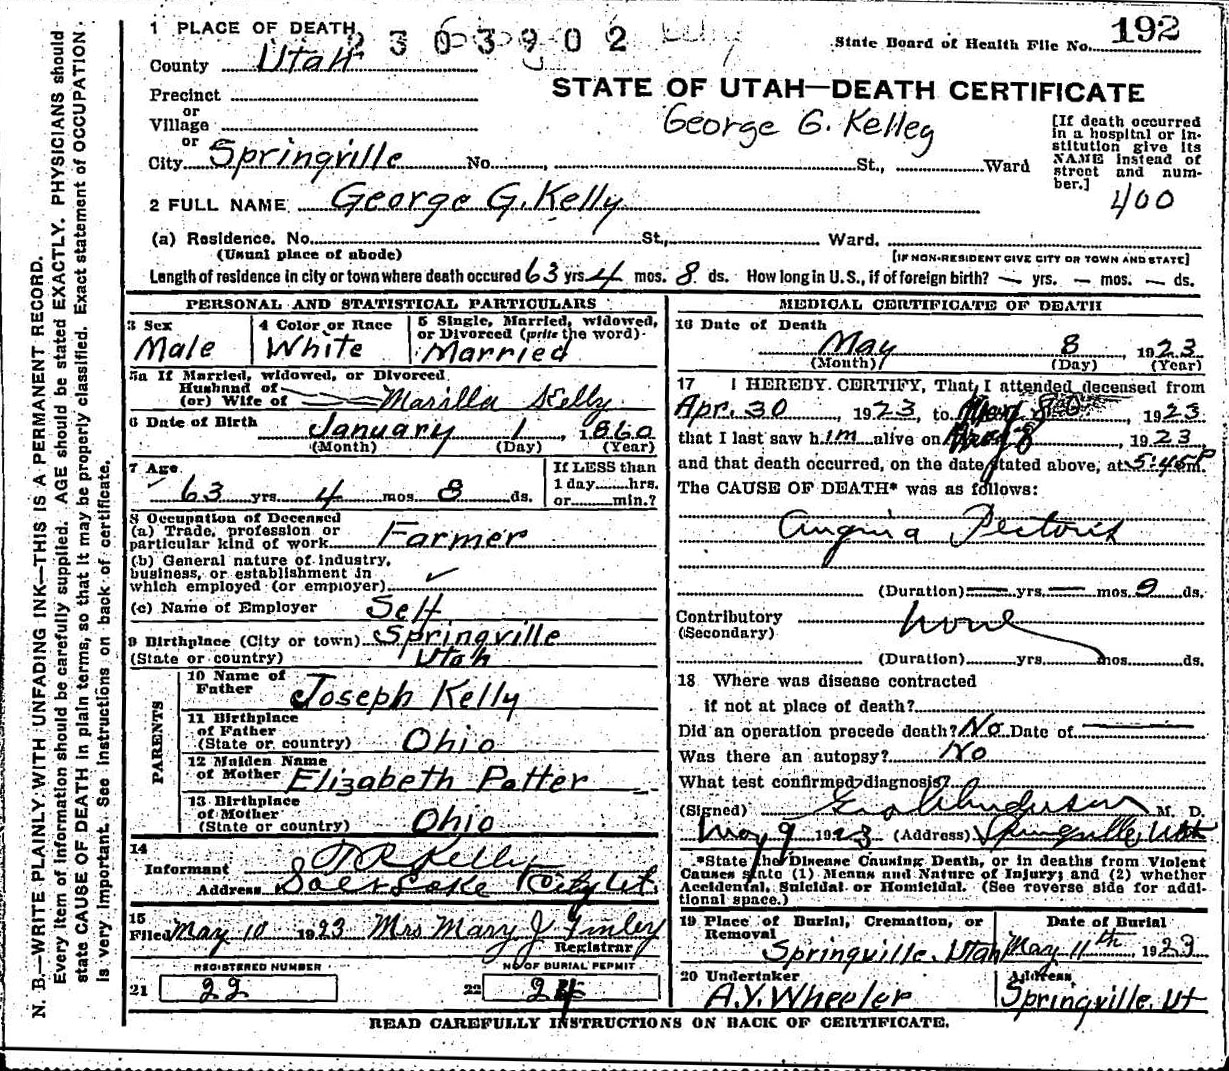 N. B.—WRITE PLAINLY WITH UNFADING INK—THIS IS A PERMANENT RECORD.
Every item of information should be carefully supplied. AGE should be stated EXACTLY. PHYSICIANS should
state CAUSE OF DEATH in plain terms, so that it may be properly classified. Exact statement of OCCUPATION
is very important. See instructions on back of certificate.
1 PLACE OF DEATH
2303902
State Board of Health File No. 192
County Utah
STATE OF UTAH—DEATH CERTIFICATE
Precinct
or
Village
George G. Kelley
[If death occurred
in a hospital or in-
stitution give its
NAME instead of
street and num-
ber.]
or
City Springville No. , St., Ward
400
2 FULL NAME George G. Kelly
(a) Residence. No. St., Ward.
(Usual place of abode) [IF NON-RESIDENT GIVE CITY OR TOWN AND STATE]
Length of residence in city or town where death occured 63 yrs. 4 mos. 8 ds. How long in U.S., if of foreign birth? — yrs. — mos. — ds.
PERSONAL AND STATISTICAL PARTICULARS
3 Sex
Male
4 Color or Race
White
5 Single, Married, widowed,
or Divorced (write the word)
Married
5a If Married, widowed, or Divorced
Husband of
(or) Wife of Marilla Kelly
6 Date of Birth January 1, 1860
(Month) (Day) (Year)
7 Age
63 yrs 4 mos 8 ds.
If LESS than
1 day hrs.
or min.?
8 Occupation of Deceased
(a) Trade, profession or
particular kind of work Farmer
(b) General nature of industry,
business, or establishment in
which employed (or employer)
(c) Name of Employer Self
9 Birthplace (City or town) Springville
(State or country) Utah
PARENTS
10 Name of
Father Joseph Kelly
11 Birthplace
of Father
(State or country) Ohio
12 Maiden Name
of Mother Elizabeth Potter
13 Birthplace
of Mother
(State or country) Ohio
14
Informant T R Kelly
Address Salt Lake City Ut.
15
Filed May 10 1923 Mrs Mary J Finley
Registrar
REGISTERED NUMBER
21 22
NO OF BURIAL PERMIT
22 24
MEDICAL CERTIFICATE OF DEATH
16 Date of Death
May 8, 1923
(Month) (Day) (Year)
17 I HEREBY CERTIFY, That I attended deceased from
Apr. 30, 1923, to May 8, 1923
that I last saw him alive on May 8, 1923
and that death occurred, on the date stated above, at 5:45 P m.
The CAUSE OF DEATH* was as follows:
Angina Pectoris
(Duration) — yrs. — mos. 9 ds.
Contributory none
(Secondary)
(Duration) yrs. mos. ds.
18 Where was disease contracted
if not at place of death?
Did an operation precede death? No Date of
Was there an autopsy? No
What test confirmed diagnosis?
(Signed) Geo Anderson M. D.
May 9 1923 (Address) Springville, Utah
*State the Disease Causing Death, or in deaths from Violent
Causes state (1) Means and Nature of Injury; and (2) whether
Accidental, Suicidal or Homicidal. (See reverse side for addi-
tional space.)
19 Place of Burial, Cremation, or
Removal
Springville, Utah
Date of Burial
May 11th, 1923
20 Undertaker
A.Y. Wheeler
Address
Springville, Ut
READ CAREFULLY INSTRUCTIONS ON BACK OF CERTIFICATE.